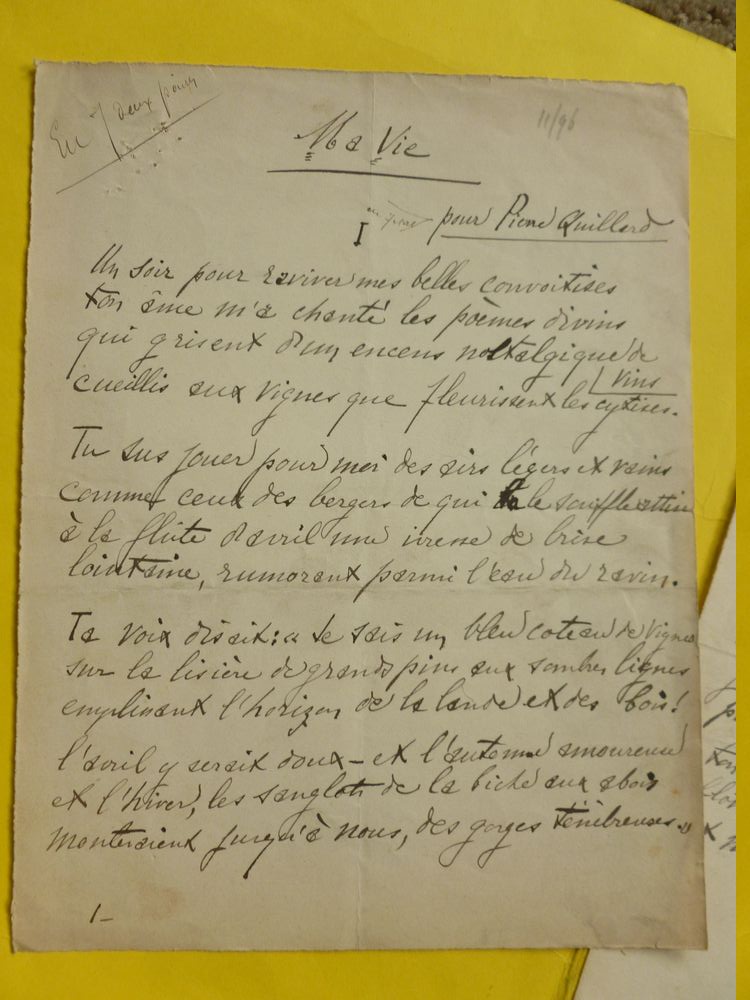 En 7 deux jours
11/96
Ma Vie
I pour Pierre Quillard
Un soir pour raviver mes belles convoitises
ton âme m'a chanté les poèmes divins
qui grisent d'un encens nostalgique de
vins
cueillis aux vignes que fleurissent les cytises.
Tu sus jouer pour moi des airs légers et vains
comme ceux des bergers de qui le souffle attise
à la flûte d'avril une ivresse de brise
lointaine, rumorant parmi l'eau du ravin.
Ta voix disait: « Je sais un bleu coteau de vignes
sur la lisière de grands pins aux sombres lignes
emplissant l'horizon de la lande et des bois!
l'avril y serait doux – et l'automne amoureuse
et l'hiver, les sanglots de la biche aux abois
monteraient jusqu'à nous, des gorges ténébreuses. »
1–